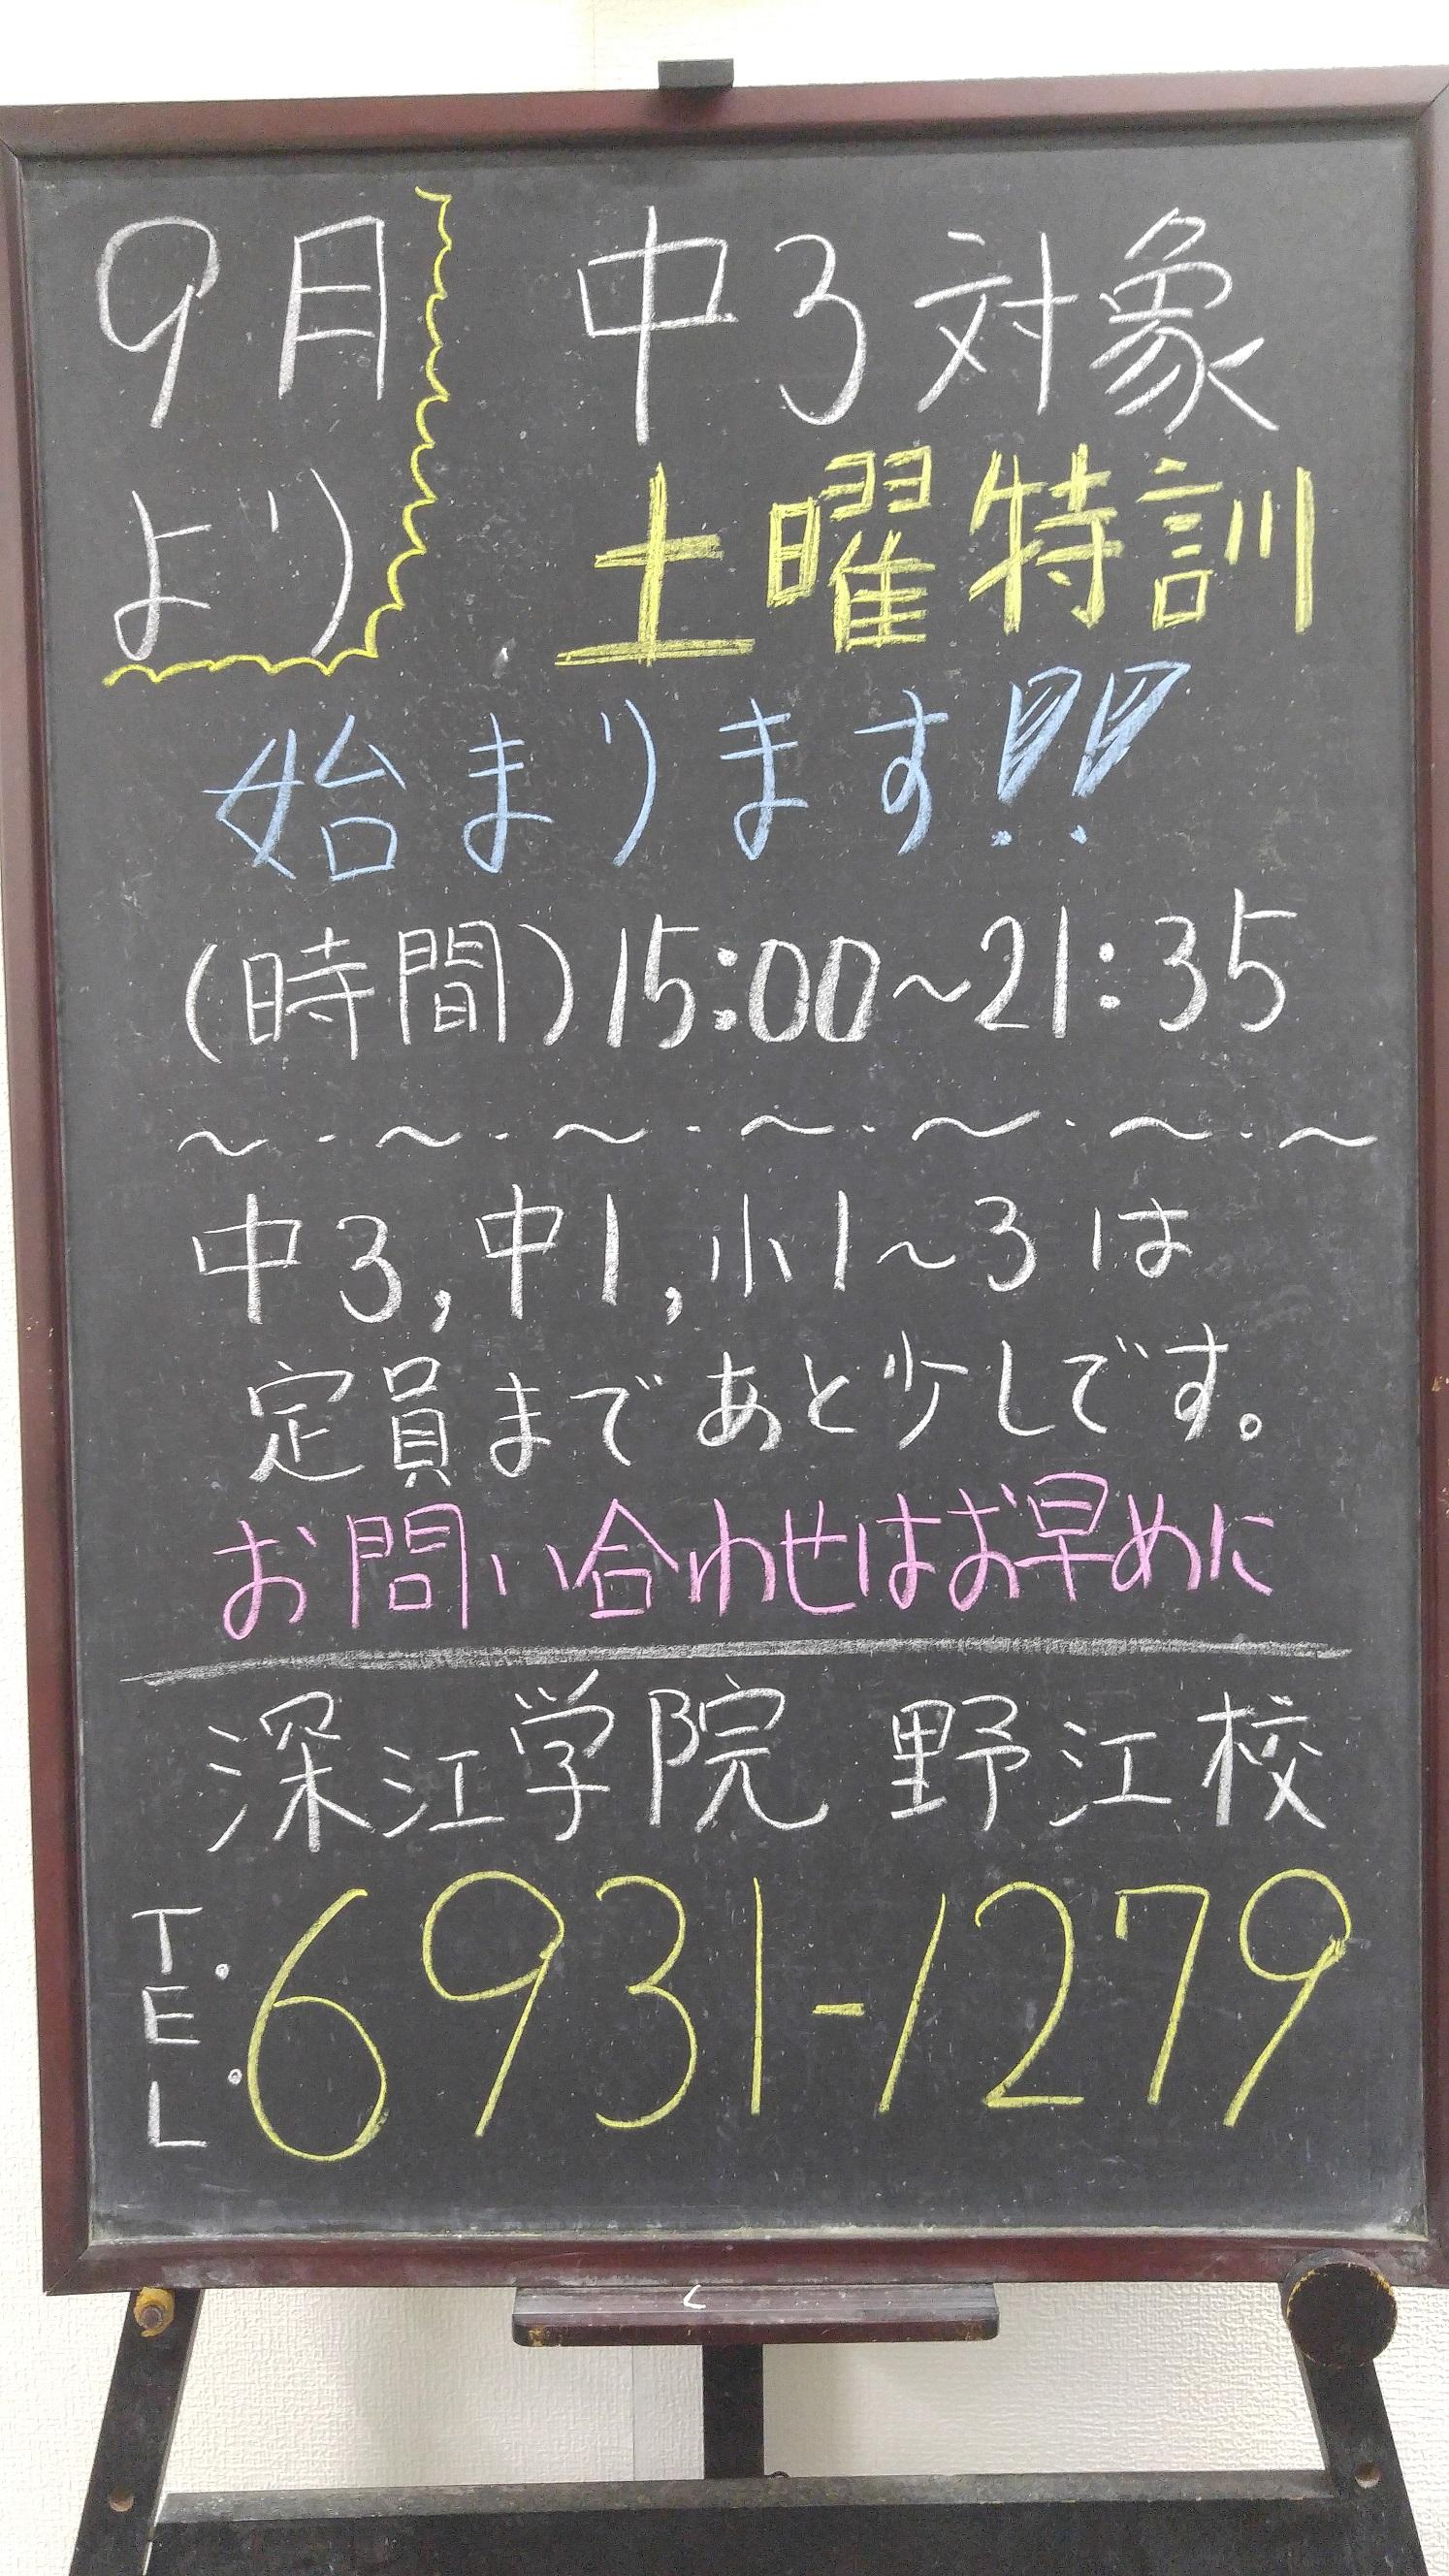 9月
より
中3対象
土曜特訓
始まります!!
(時間)15:00~21:35
~・~・~・~・~・~・~
中3,中1,小1~3は
定員まであと少しです。
お問い合わせはお早めに
深江学院 野江校
T.E.L 6931-1279